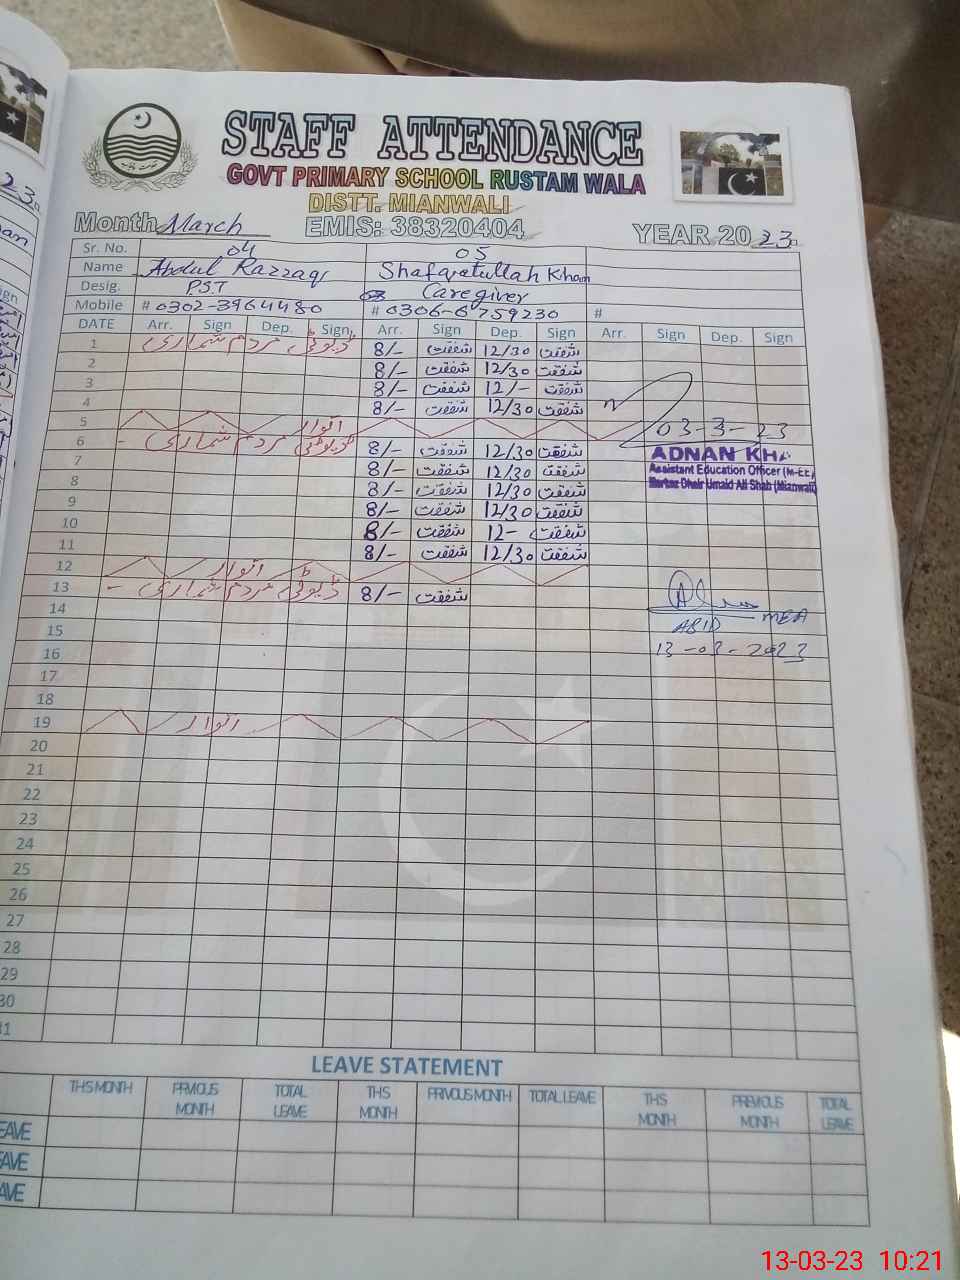 STAFF ATTENDANCE
GOVT PRIMARY SCHOOL RUSTAM WALA
DISTT. MIANWALI
Month March EMIS: 38320404 YEAR 2023
Sr. No. 04 05
Name Abdul Razzaq Shafqatullah Khan
Desig. PST Caregiver
Mobile # 0302-3964480 # 0306-6759230 #
DATE Arr. Sign Dep. Sign Arr. Sign Dep. Sign Arr. Sign Dep. Sign
1 ڈیوٹی مردم شماری 8/- شفقت 12/30 شفقت
2 8/- شفقت 12/30 شفقت
3 8/- شفقت 12/- شفقت
4 8/- شفقت 12/30 شفقت
5 اتوار 03-3-23
6 ڈیوٹی مردم شماری 8/- شفقت 12/30 شفقت ADNAN KHA
7 8/- شفقت 12/30 شفقت Assistant Education Officer (M-EE)
8 8/- شفقت 12/30 شفقت Markaz Dhair Umaid Ali Shah (Mianwali)
9 8/- شفقت 12/30 شفقت
10 8/- شفقت 12- شفقت
11 8/- شفقت 12/30 شفقت
12 اتوار
13 ڈیوٹی مردم شماری 8/- شفقت
14 MEA
15 ABID
16 13-03-2023
17
18
19 اتوار
20
21
22
23
24
25
26
27
28
29
30
31
LEAVE STATEMENT
THS MONTH PRVIOUS MONTH TOTAL LEAVE THS MONTH PRIVOUS MONTH TOTAL LEAVE THS MONTH PREVIOUS MONTH TOTAL LEAVE
EAVE
EAVE
AVE
13-03-23 10:21